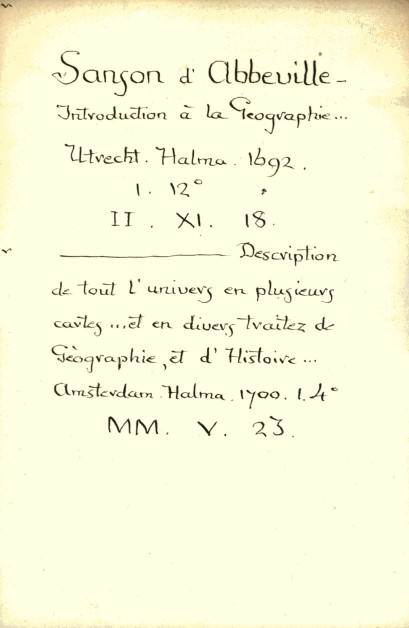 Sanson d' Abbeville -
Introduction à la Geographie...
Utrecht. Halma. 1692.
1. 12°
II. XI. 18.
——— Description
de tout l'univers en plusieurs
cartes ... et en divers traitez de
Géographie, et d'Histoire ...
Amsterdam. Halma. 1700. 1. 4°
MM. V. 23.